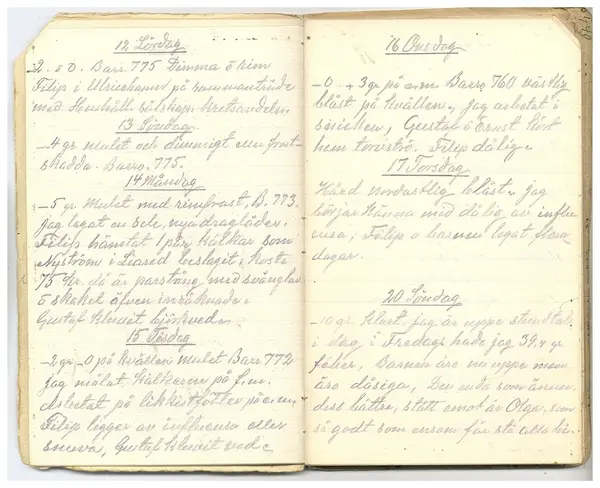 12 Lördag
-2. o 0. Barr. 775 Dimma ö rim
Filip i Ulricehamn på sammanträde
med Hushåll sälskap. Kretsavdeln.
13 Söndag
-4 gr mulet och dimmigt en frost-
skadda. Baro. 775.
14 Måndag
-5 gr. Mulet med rimfrost, B. 773.
jag lagat en Sele, nya dragläder.
Filip hämtat 1 par Kälkar som
Nyström i Liared beslagit, kosta
75 kr. då är parstång med svänglar
å skakel äfven inräknade.
Gustaf klyvit björkved.
15 Tisdag
-2 gr -0 på kvällen mulet Barr 772
jag målat Kälkarne på f.m.
arbetat på likkistfötter på e.m.
Filip ligger av influensa eller
snuva, Gustaf klyvit ved.
16 Onsdag
-0 + 3 gr på e.m Baro 760 västlig
blåst på kvällen, jag arbetat i
snickeri, Gustaf ö Ernst kört
hem torvströ. Filip dålig.
17 Torsdag
Hård nordostlig blåst. jag
börjar känna med då bia av influ
ensa, Filip o barnen legat flera
dagar.
20 Söndag
-10 gr klart, jag är uppe stundtals
i dag, i Fredags hade jag 39,4 gr
feber, Barnen äro nu uppe men
äro dåsiga, Den enda som ännu
dess bättre, stått emot är Olga, som
så godt som ensam får stå alla bi.